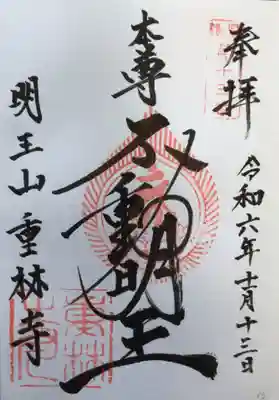 奉拝
令和六年十一月十三日
本尊
不動明王
明王山重林寺